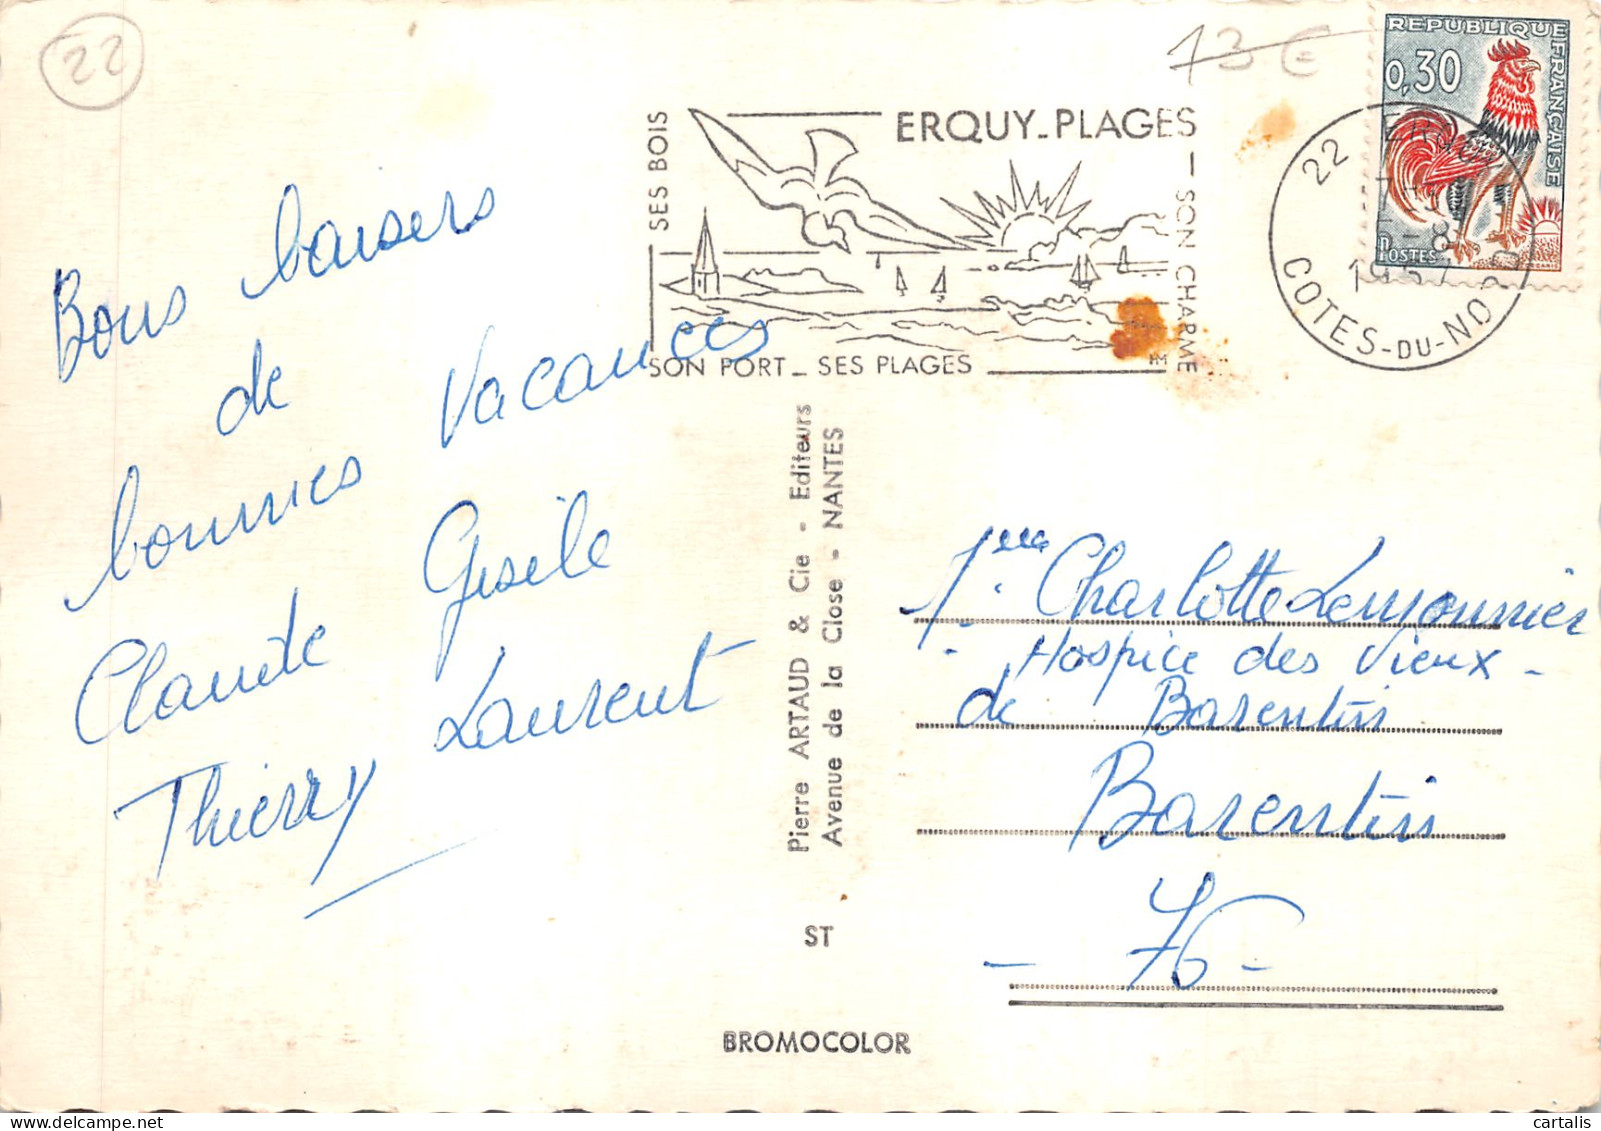 22
13 €
REPUBLIQUE FRANÇAISE
0,30
POSTES
ERQUY_PLAGES
SES BOIS
SON CHARME
SON PORT_ SES PLAGES
22
COTES-DU-NORD
Bons baisers
de
bonnes Vacances
Claude Gisèle
Thierry Laurent
Pierre ARTAUD & Cie - Editeurs
Avenue de la Close - NANTES
ST
BROMOCOLOR
Charlotte Lemonnier
- Hospice des Vieux -
de Barentin
Barentin
- 76 -
cartalis
delcampe.net